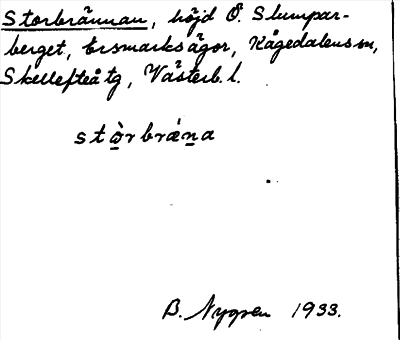 Storbrännan, höjd Ö. Slumpar-
berget, Ersmarks ägor, Kågedalens sn,
Skellefteå tg, Västerb. l.
stò̱rbrǽṉa
B. Nygren 1933.